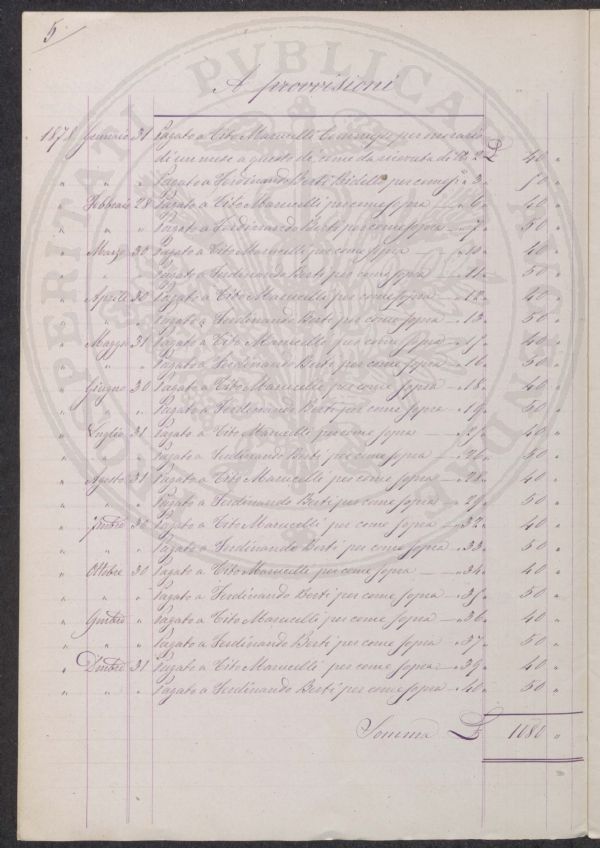 5
A provvisioni
1878 Gennaio 31 Pagato a Tito Marucelli Commesso per onorario
di un mese a questo dì come da ricevuta di N. 2 £ 40 "
" " " Pagato a Ferdinando Berti Bidello per come sopra " 3 " 50 "
" Febbraio 28 Pagato a Tito Marucelli per come sopra — " 6 " 40 "
" " " Pagato a Ferdinando Berti per come sopra — " 7 " 50 "
" Marzo 30 Pagato a Tito Marucelli per come sopra — " 10 " 40 "
" " " Pagato a Ferdinando Berti per come sopra — " 11 " 50 "
" Aprile 30 Pagato a Tito Marucelli per come sopra — " 12 " 40 "
" " " Pagato a Ferdinando Berti per come sopra — " 13 " 50 "
" Maggio 31 Pagato a Tito Marucelli per come sopra — " 15 " 40 "
" " " Pagato a Ferdinando Berti per come sopra — " 16 " 50 "
" Giugno 30 Pagato a Tito Marucelli per come sopra — " 18 " 40 "
" " " Pagato a Ferdinando Berti per come sopra — " 19 " 50 "
" Luglio 31 Pagato a Tito Marucelli per come sopra — " 40 "
" " " Pagato a Ferdinando Berti per come sopra — " 26 " 50 "
" Agosto 31 Pagato a Tito Marucelli per come sopra — " 28 " 40 "
" " " Pagato a Ferdinando Berti per come sopra — " 29 " 50 "
" 7mbre 30 Pagato a Tito Marucelli per come sopra — " 32 " 40 "
" " " Pagato a Ferdinando Berti per come sopra — " 33 " 50 "
" Ottobre 30 Pagato a Tito Marucelli per come sopra — " 34 " 40 "
" " " Pagato a Ferdinando Berti per come sopra — " 35 " 50 "
" 9mbre " Pagato a Tito Marucelli per come sopra — " 36 " 40 "
" " " Pagato a Ferdinando Berti per come sopra — " 37 " 50 "
" Dmbre 31 Pagato a Tito Marucelli per come sopra — " 39 " 40 "
" " " Pagato a Ferdinando Berti per come sopra — " 40 " 50 "
Somma £ 1080 "